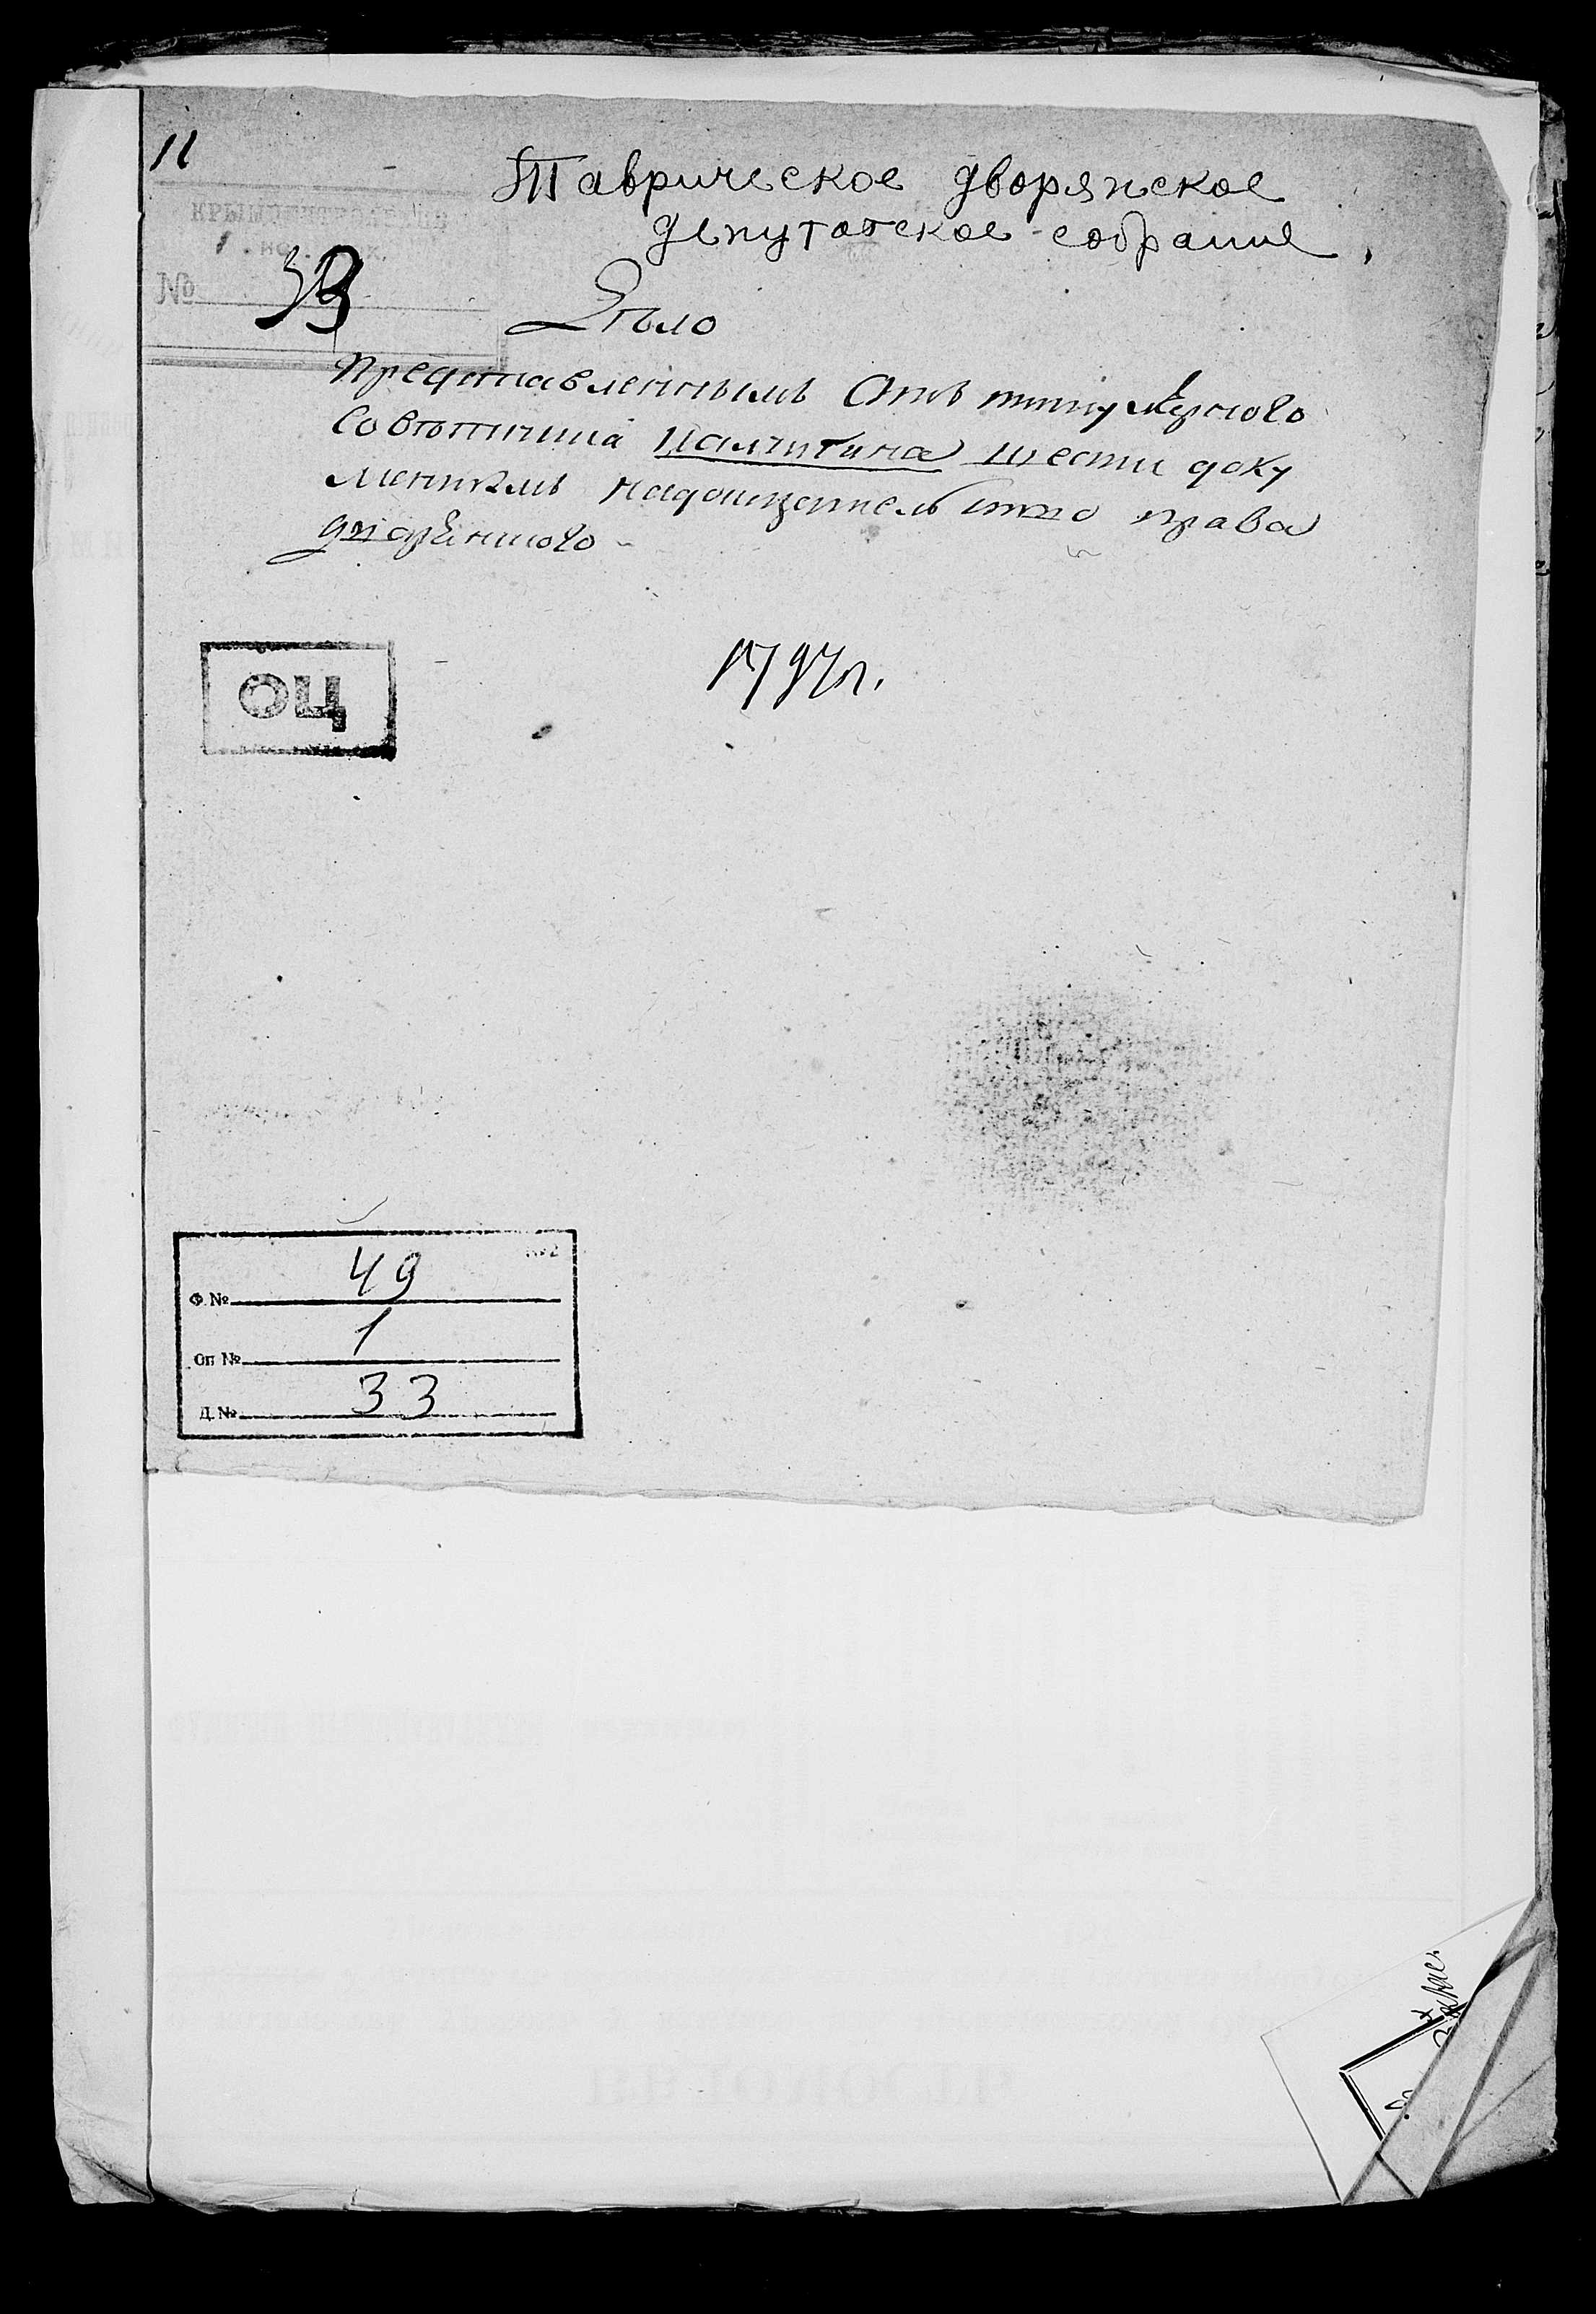 11
Таврическое дворянское
депутатское собрание,
КРЫМЦЕНТРАРХИВ
№ 33
Дѣло
Представленнымъ Отъ титулярного
Совѣтника Калчигина шести доку
ментамъ надоказательство права
дворянского
ОЦ
1797 г.
№2
Ф. № 49
Оп № 1
Д. № 33